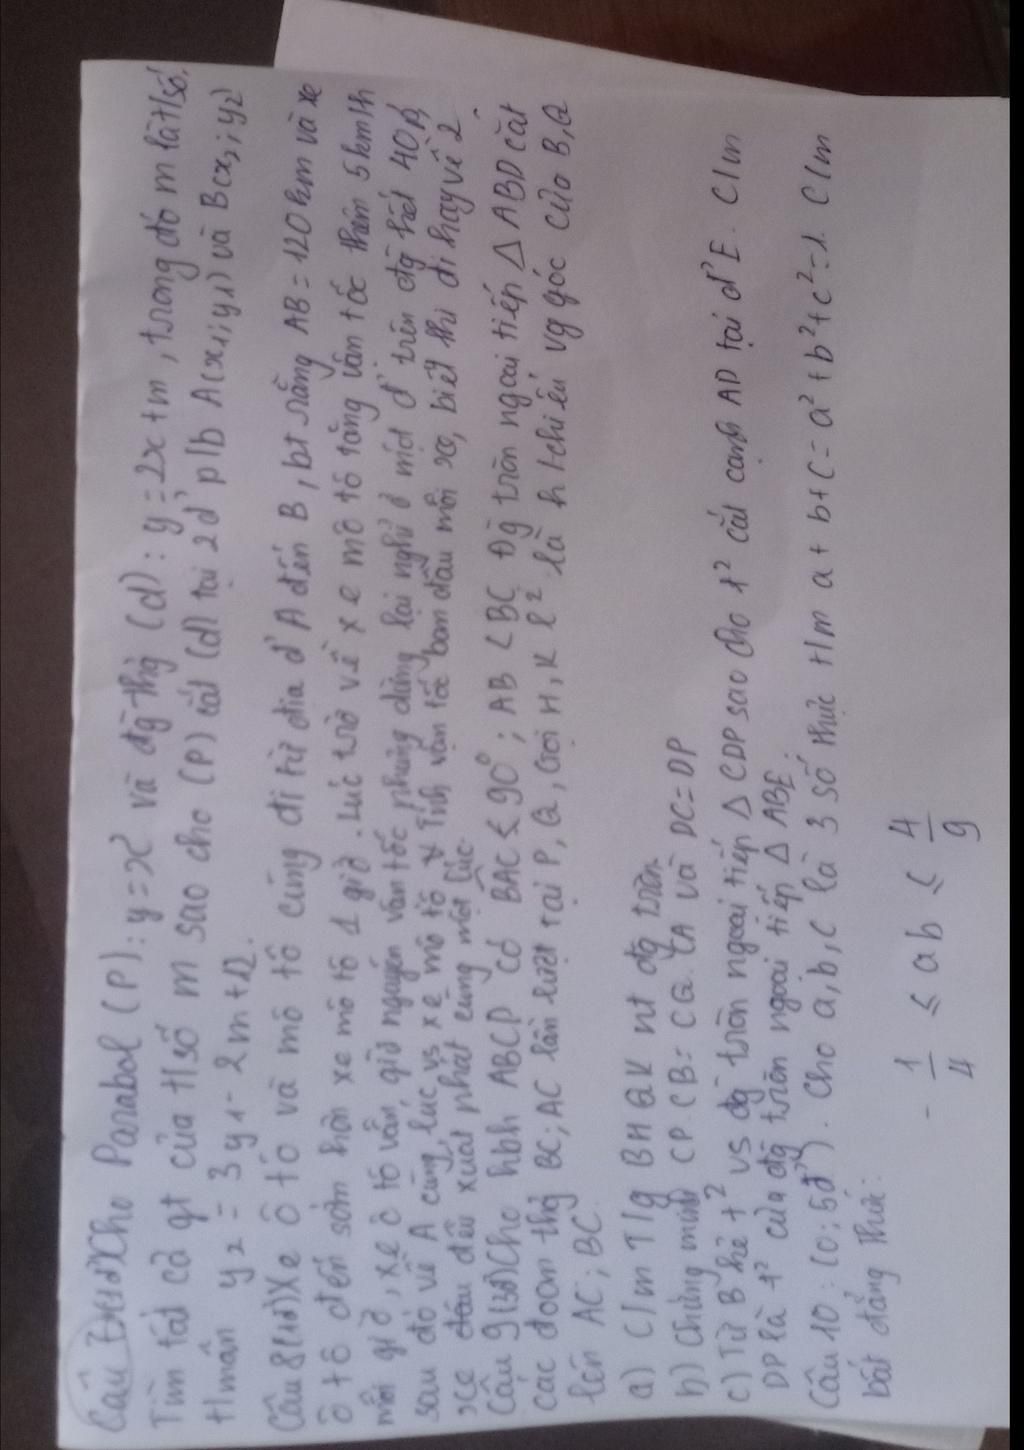 Câu 7(1đ) Cho Parabol (P): y = x² và đg thg (d): y = 2x + m, trong đó m là t/số.
Tìm tất cả gt của t/số m sao cho (P) cắt (d) tại 2 đ' p/b A(x₁; y₁) và B(x₂; y₂)
t/mãn y₂ = 3y₁ - 2m + 12.
Câu 8(1đ) Xe ô tô và mô tô cùng đi từ địa đ' A đến B, bt rằng AB = 120 km và xe
ô tô đến sớm hơn xe mô tô 1 giờ. Lúc trở về xe mô tô tăng vận tốc thêm 5 km/h
mỗi giờ, xe ô tô vẫn giữ nguyên vân tốc nhưng dừng lại nghỉ ở một đ' trên đg hết 40 p,
sau đó về A cùng lúc vs xe mô tô. Tính vận tốc ban đầu mỗi xe, biết khi đi hay về 2
xe đều xuất phát cùng một lúc.
Câu 9(3đ) Cho hbh ABCD có BAC < 90°; AB < BC Đg tròn ngoại tiếp △ ABD cắt
các đoạn thg BC; AC lần lượt tại P, Q, Gọi H, K l² là h/chiếu vg góc của B, Q
lên AC; BC.
a) C/m T/g BHQK nt đg tròn.
b) Chứng minh CP.CB = CQ.CA và DC = DP
c) Từ B kẻ t² vs đg tròn ngoại tiếp △ CDP sao cho t² cắt cạnh AD tại đ' E. C/m
DP là t² của đg tròn ngoại tiếp △ ABE.
Câu 10: (0,5đ). Cho a, b, c là 3 số thực t/m a + b + c = a² + b² + c² = 1. C/m
bất đẳng thức:
- 1/4 ≤ ab ≤ 4/9